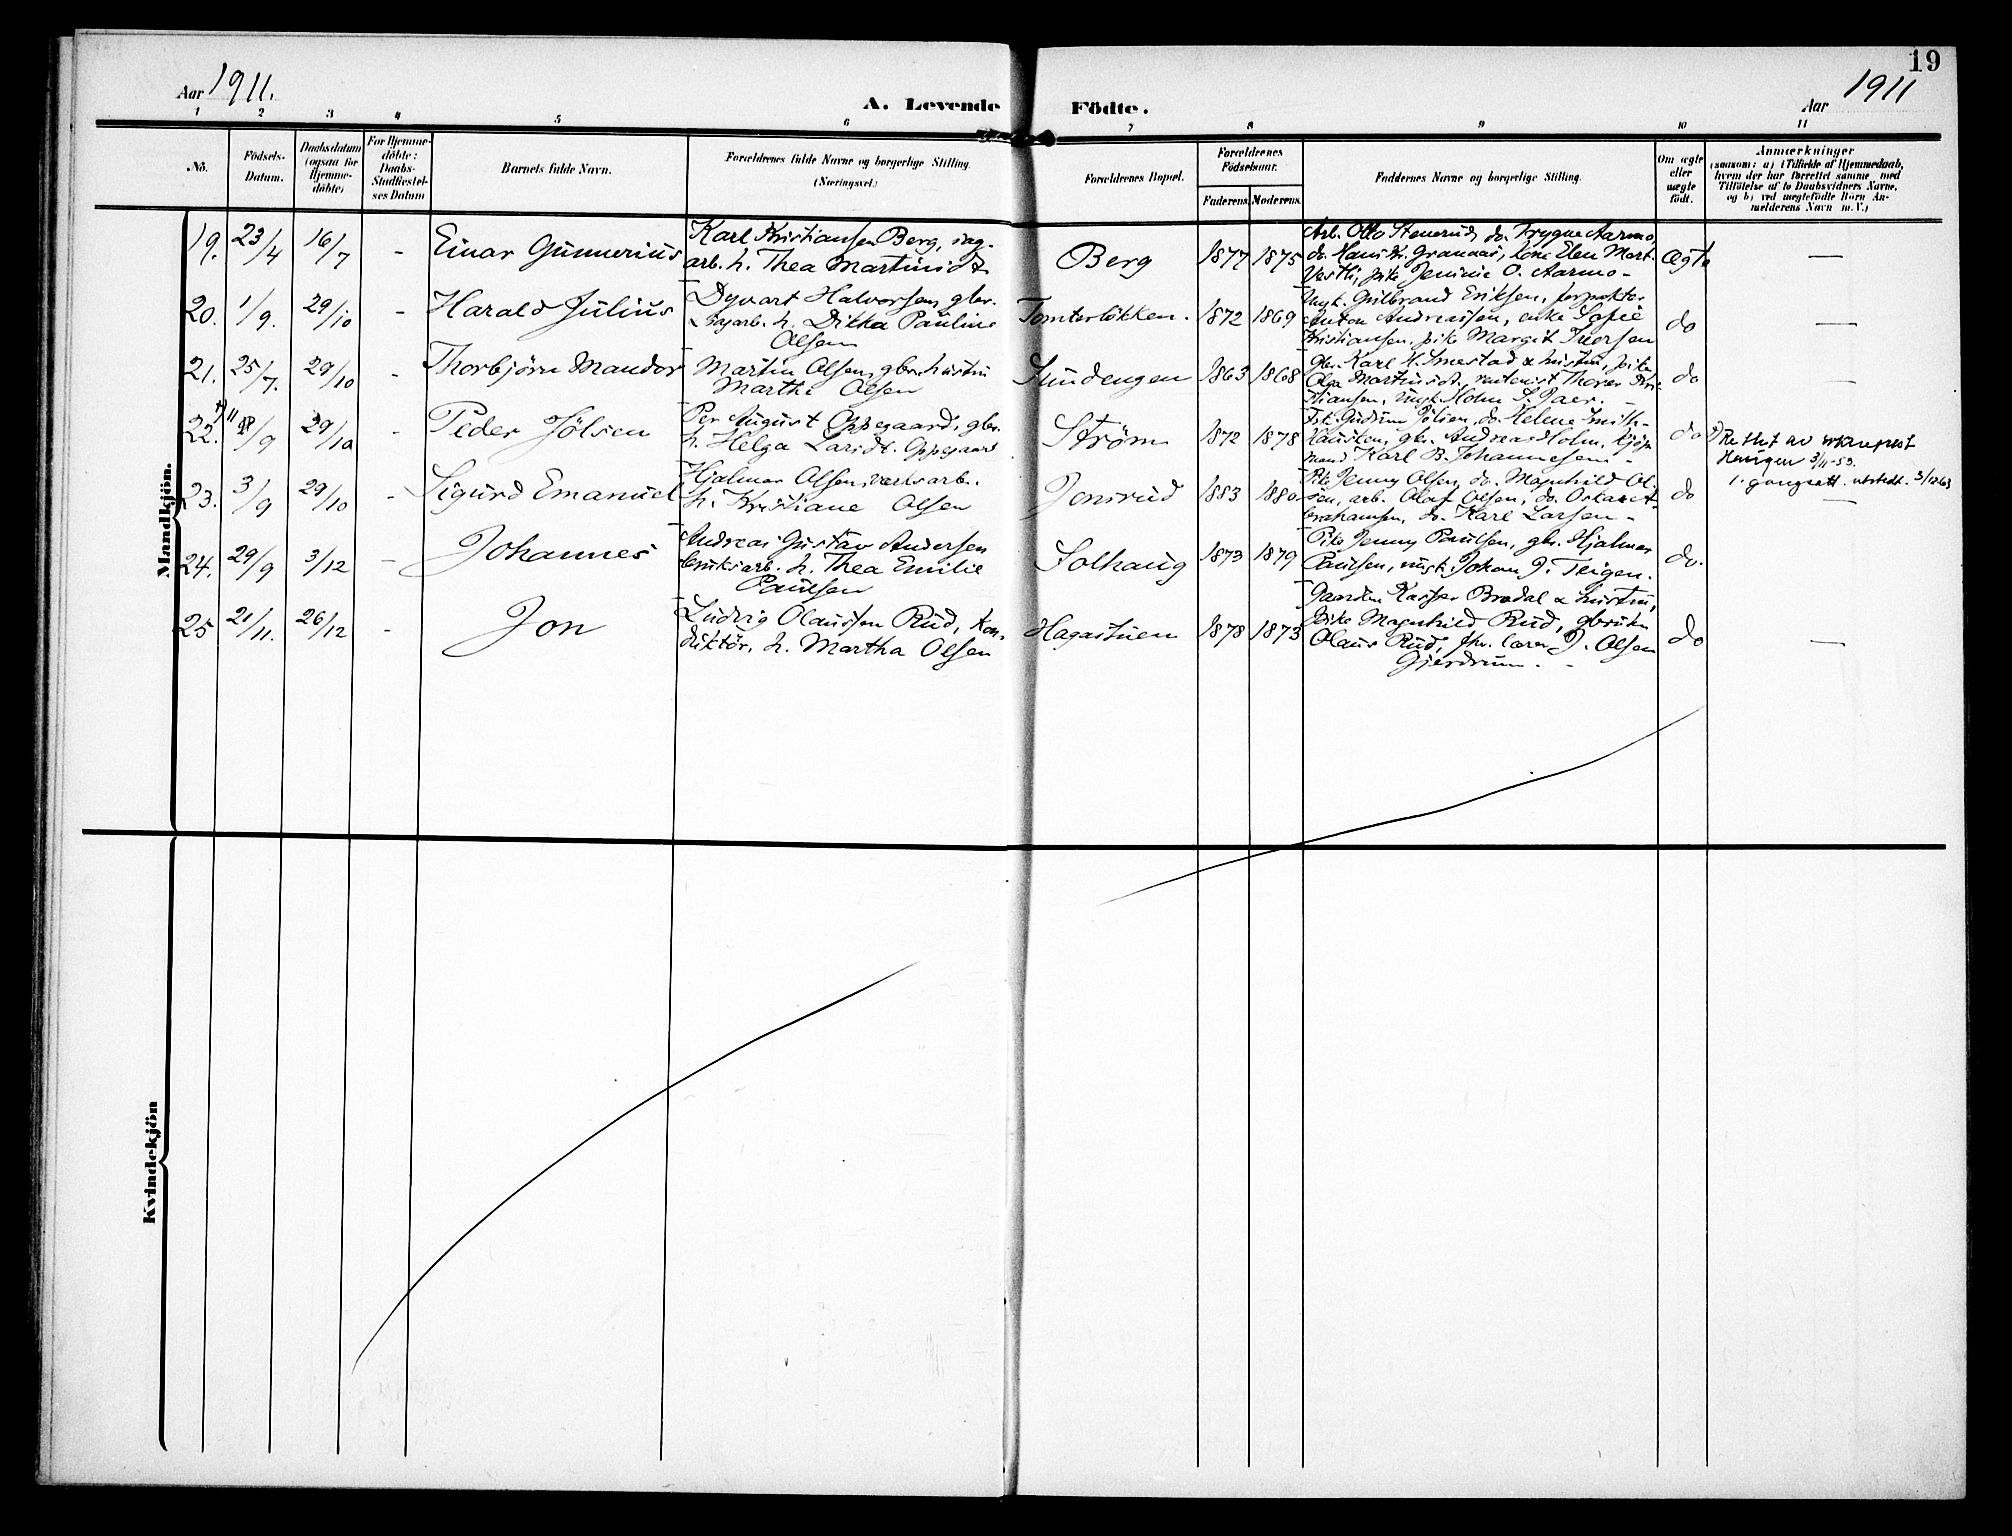 19
Aar 1911.
A. Levende Födte.
Aar 1911
1 2 3 4 5 6 7 8 9 10 11
No.
Födsels-
Datum.
Daabsdatum
(ogsaa for
Hjemme-
döbte)
For Hjemme-
döbte:
Daabs-
Stadfæstel-
ses Datum
Barnets fulde Navn.
Forældrenes fulde Navne og borgerlige Stilling.
(Næringsvei.)
Forældrenes Bopæl.
Forældrenes
Födselsaar.
Faderens
Moderens
Faddernes Navne og borgerlige Stilling.
Om ægte
eller
uægte
født.
Anmærkninger
(saasom: a) i Tilfælde af Hjemmedaab,
hvem der har forrettet samme, med
Tilföielse af to Daabsvidners Navne,
og b) ved uægtefödte Börn An-
melderens Navn m. V.)
Mandkjön.
19. 23/4 16/7 - Einar Gunnerius
Karl Kristiansen Berg, sag-
arb. h. Thea Martinsdt.
Berg 1877 1875
Arb. Otto Stenerud, do. Trygve Aarmo,
do. Hans Kr. Granaas, kone Elen Mart.
Vestli, pike Jeninie O. Aarmo -
Ægte —
20. 1/9. 29/10 - Harald Julius
Dyvart Halvorsen, gbr.
sagarb. h. Dikka Pauline
Olsen
Tomterløkken. 1872 1869
Ungk. Gulbrand Eriksen, forpakter
Anton Andreassen, enke Sofie
Kristiansen, pike Margit Iversen
do —
21. 25/7. 29/10 - Thorbjörn Mandor
Martin Olsen, gbr. hustru
Marthe Olsen
Sundengen 1863 1868
gbr. Karl H. Smestad & hustru, pike
Olga Martinsdt., rentenist Thorer Kri-
stiansen, ungk. Holm S. Paer. -
do —
22. 11/9 29/10 - Peder Jölsen
Per August Oppegaard, gbr.
h. Helga Larsdt. Oppegaard
Strøm 1872 1878
Frk. Gudrun Jölsen, do. Helene Smith-
, gbr. Andreas Holm, kjöp
mand Karl B. Johannesen -
do
Rettet av sokneprest
3/11-53.
1. gangsatt. utstedt. 3/1263
23. 3/9 29/10 - Sigurd Emanuel
Hjalmar Olsen, verksarb.
h. Kristiane Olsen
Jensrud 1883 1880
Pike Jenny Olsen, do. Magnhild Ol-
sen, arb. Olaf Olsen, do. Oskar A-
brahamsen, do. Karl Larsen -
do —
24. 29/9 3/12 - Johannes
Andreas Gustav Andersen
bruksarb. h. Thea Emilie
Paulsen
Solhaug 1873 1879
Pike Jenny Paulsen, gbr. Hjalmar
Paulsen, ungk. Johan J. Teigen.
do.
25 21/11. 26/12 - Jon
Ludvig Olaussen Rud, kon-
duktör, h. Martha Olsen
Hagastuen 1878 1873
Gaardm. Kasper Bradal & hustru,
pike Magnhild Rud, gbruker
Olaus Rud, fhv. lærer J. Olsen
Gjerdrum. -
do —
Kvindekjön